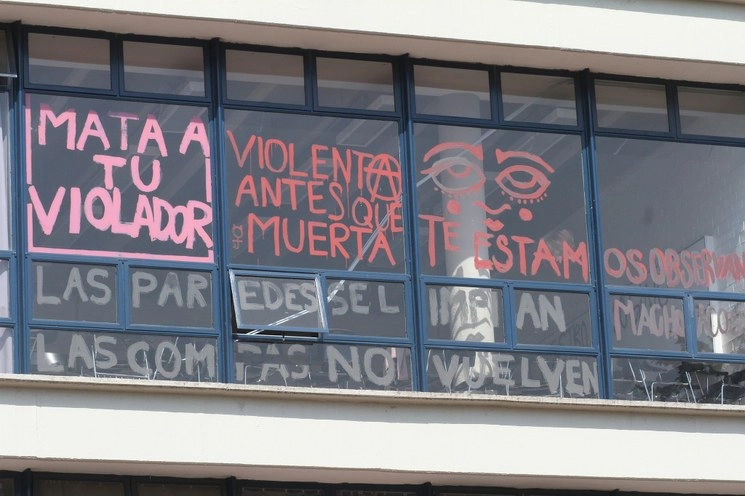 MATA A
TU
VIOLADOR
VIOLENTA
ANTES QUE
MUERTA
TE ESTAMOS OBSERVAN
MACHO
LAS PAREDES SE LIMPIAN
LAS COMPAS NO VUELVEN